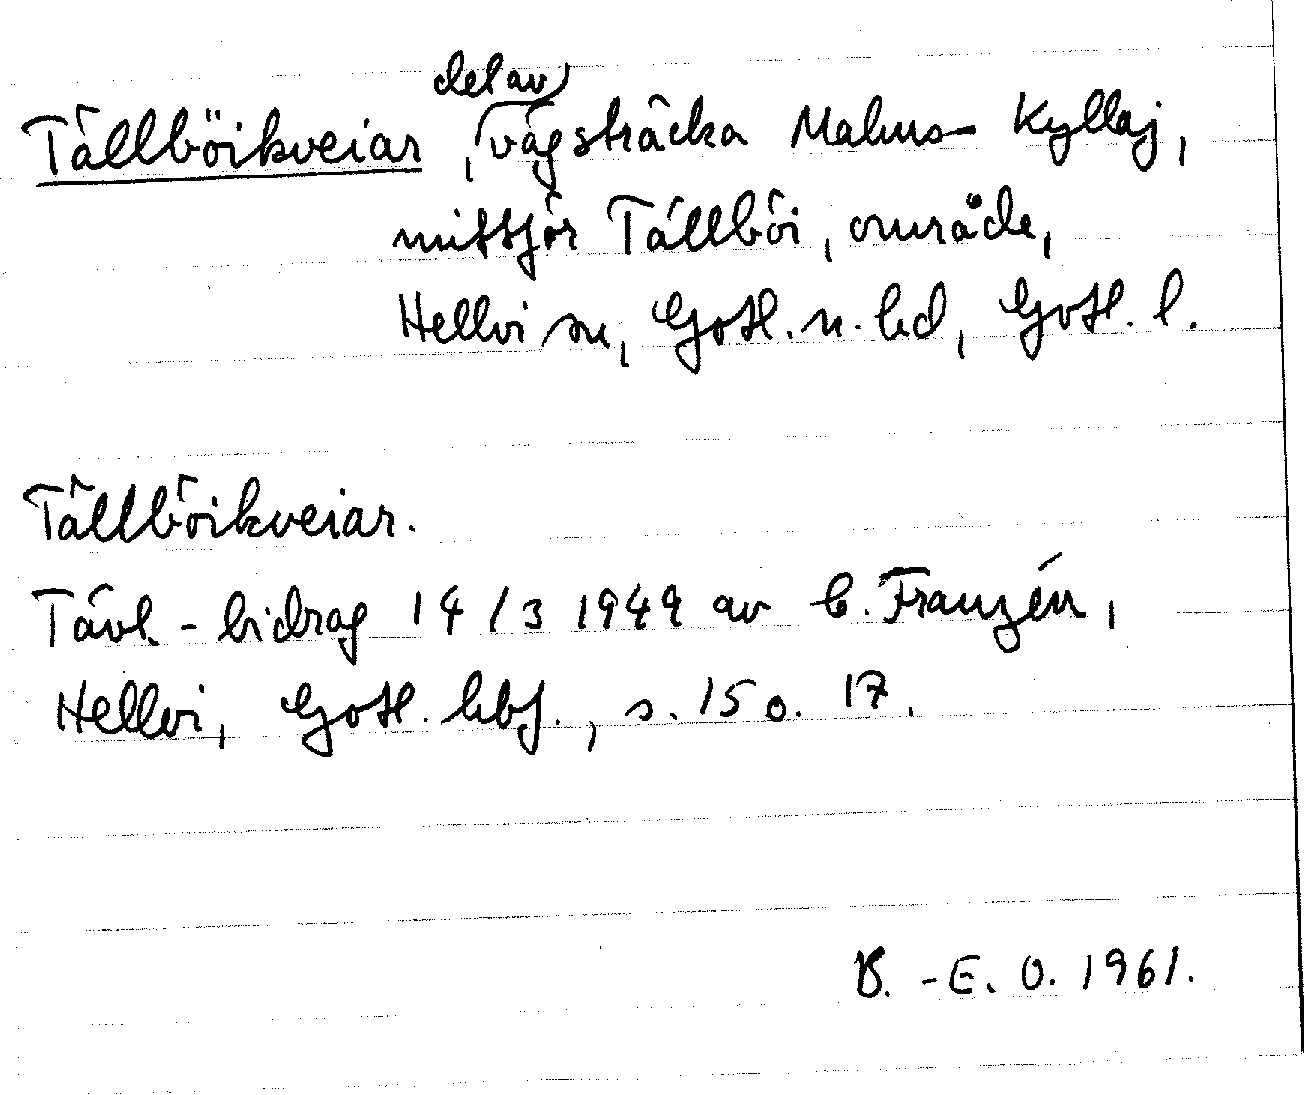 Tällböikveiar, del av vägsträcka Malms–Kyllaj,
mittför Tällböi, område,
Hellvi sn, Gotl. n. hd, Gotl. l.
Tällböikveiar.
Tävl-bidrag 14/3 1949 av b. Franzén,
Hellvi, Gotl. hbf., s. 15 o. 17.
B.-E. O. 1961.